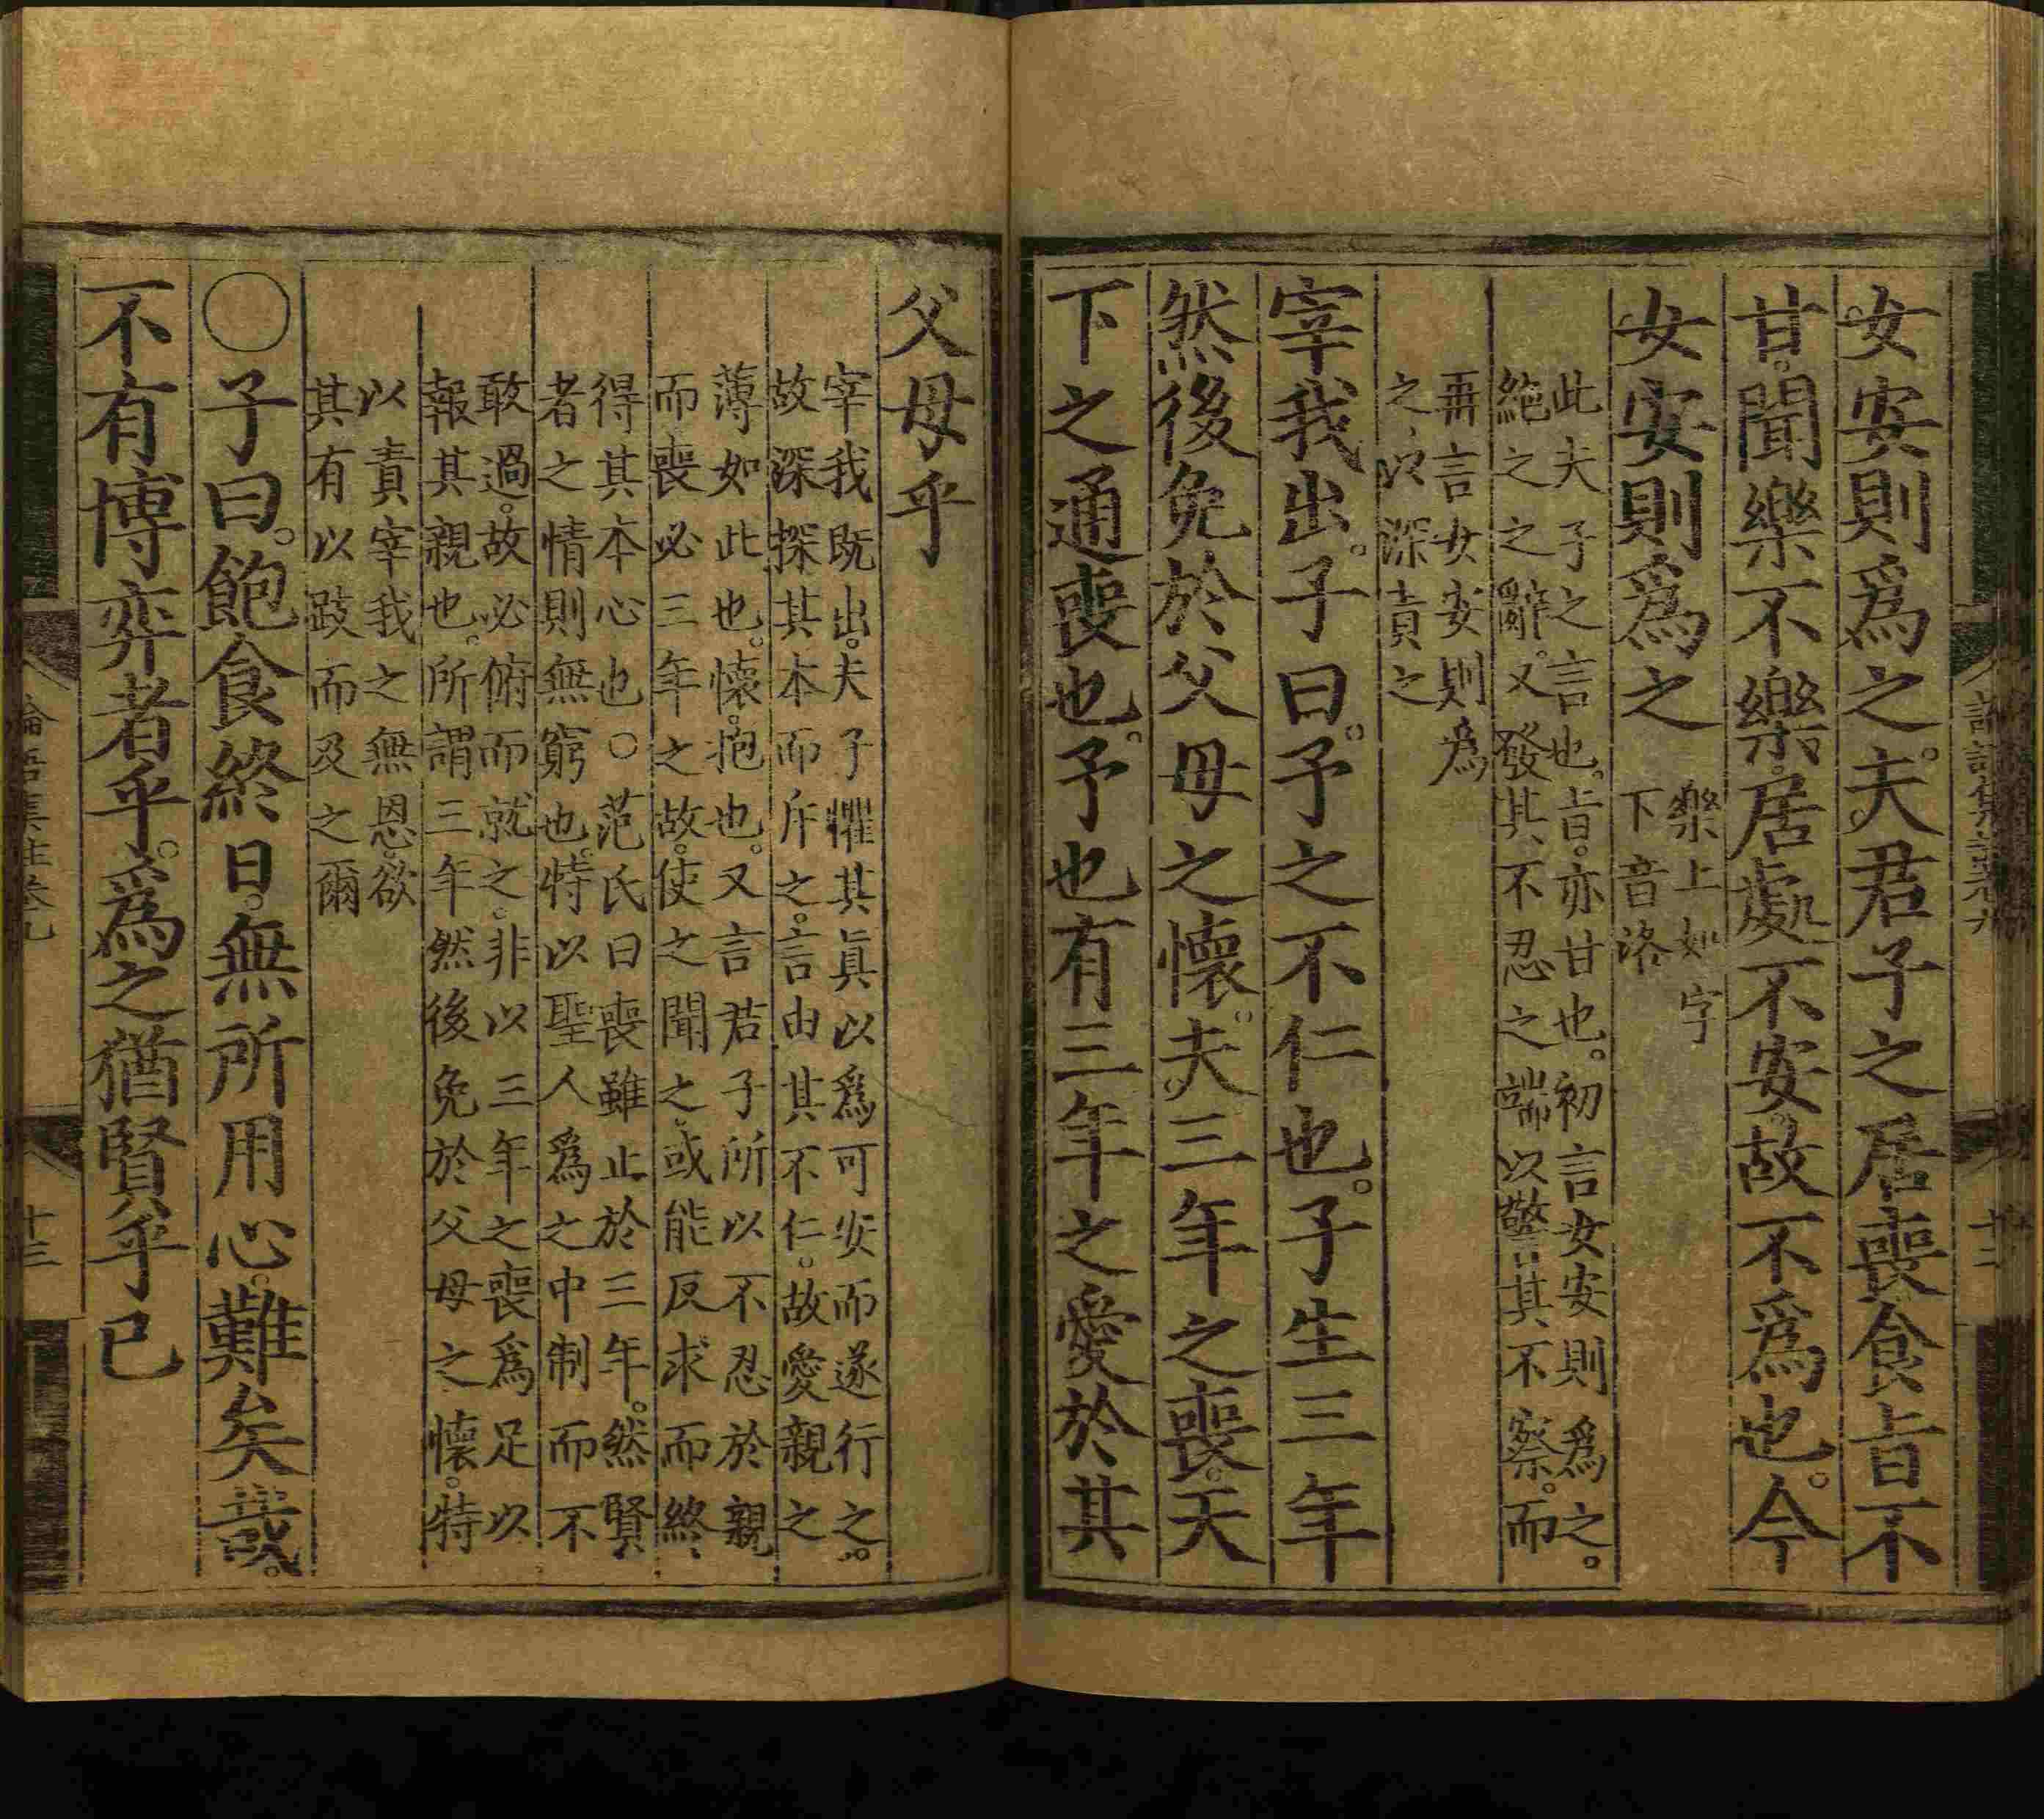 女安則爲之。夫君子之居喪食旨不
甘。聞樂不樂。居處不安。故不爲也。今
女安則爲之
樂上如字
下音洛
此夫子之言也。旨。亦甘也。初言女安則爲之。
絶之之辭。又發其不忍之端以警其不察。而
再言女安則爲
之以深責之
宰我出。子曰。予之不仁也。子生三年
然後免於父母之懷。夫三年之喪。天
下之通喪也。予也有三年之愛於其
父母乎
宰我既出。夫子懼其眞以爲可安而遂行之。
故深探其本而斥之。言由其不仁。故愛親之
薄如此也。懷。抱也。又言君子所以不忍於親
而喪必三年之故。使之聞之。或能反求而終
得其本心也○范氏曰喪雖止於三年。然賢
者之情則無窮也。特以聖人爲之中制而不
敢過。故必俯而就之。非以三年之喪爲足以
報其親也。所謂三年然後免於父母之懷。特
以責宰我之無恩。欲
其有以跂而及之爾
○子曰。飽食終日。無所用心。難矣哉。
不有博弈者乎。爲之猶賢乎已
論語集註卷九
十三